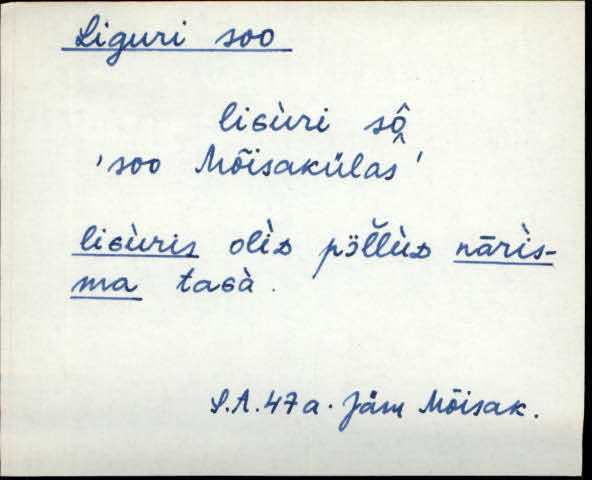 Liguri soo
liɢùri sô̭
'soo Mõisakülas'
liɢùris olìᴅ pɜ̈̆l̆lùᴅ nārìs-
ma taɢà.
S.A. 47a. Jäm Mõisak.